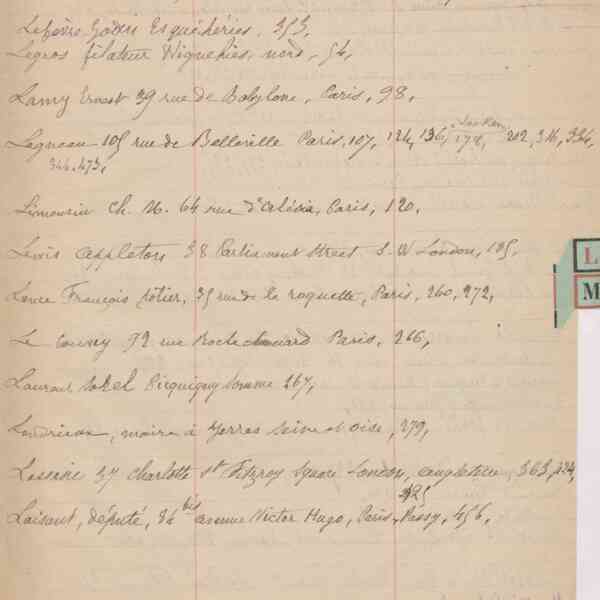 Lefèvre Godin Esquéhéries, 353,
Legros filateur Wignehies, nord, 54,
Lamy Ernest 39 rue de Babylone, Paris, 98,
Lagneau 105 rue de Belleville Paris, 107, 124, 136, 178, 202, 316, 334,
344, 473,
Limousin Ch. M. 64 rue d'Alésia, Paris, 120,
Lewis Appleton 38 Parliament Street S. W London, 195,
Lance François hôtelier, 35 rue de la roquette, Paris, 260, 272,
Le 72 rue Rochechouard Paris, 266,
Laurent Picquigny Somme 267,
Landrieau, maire à Yerres Seine et Oise, 279,
Lassassie 37 Charlotte St Fitzroy Square London, angleterre, 363, 424,
425
Laisant, député, 34 bis avenue Victor Hugo, Paris, Passy, 456,
L
M